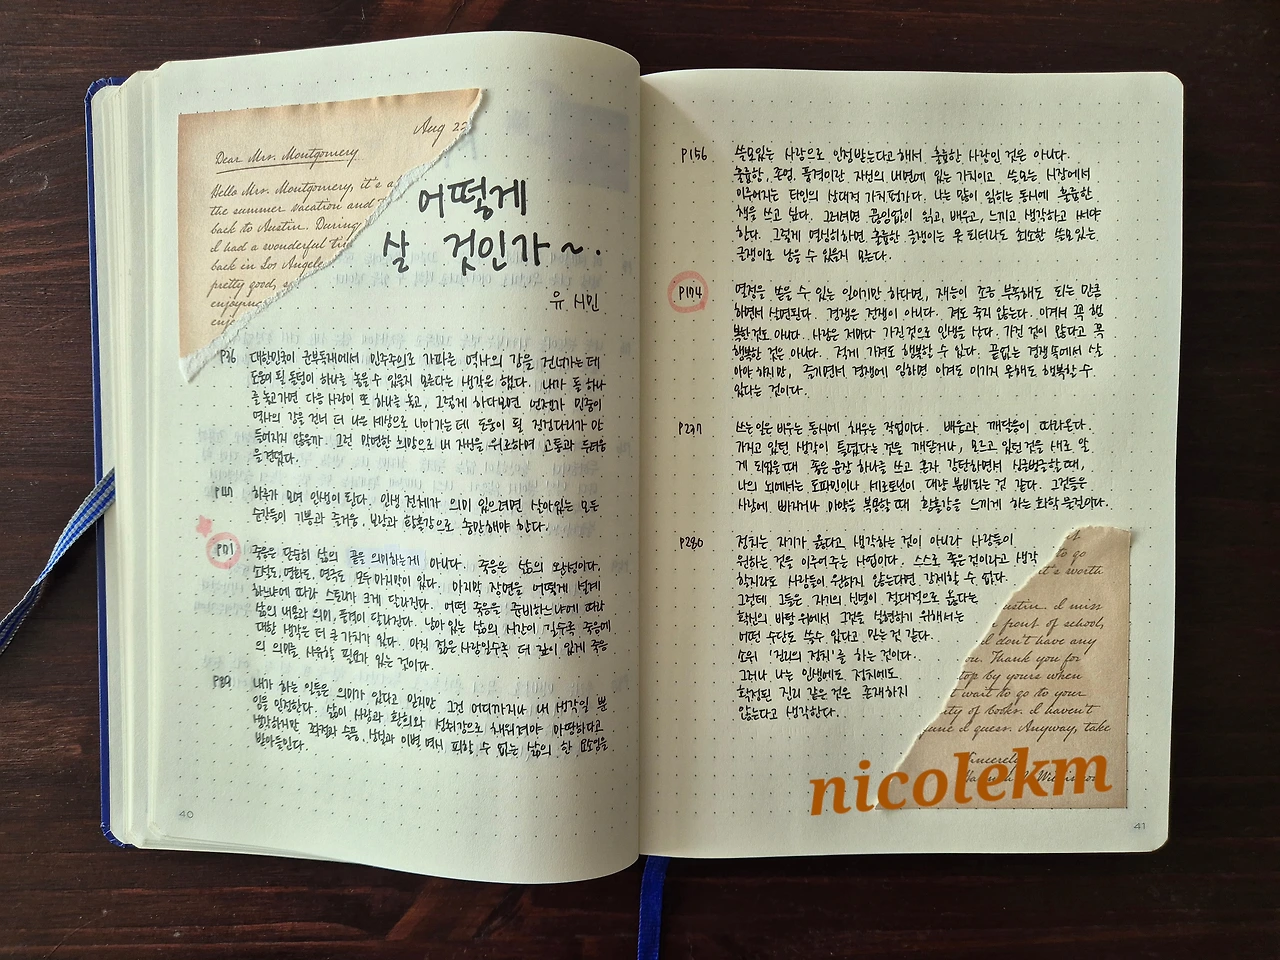 Aug 22
Dear Mrs. Montgomery
Hello Mrs. Montgomery, it's a
the summer vacation and
back to Austin. During
I had a wonderful
back in Los Angele
pretty good,
enjoying
enjo
어떻게
살 것인가~.
유시민
P36 대한민국이 군부독재에서 민주주의로 가파른 역사의 강을 건너가는데
도움이 될 돌덩이 하나를 놓을 수 있을지 모른다는 생각은 했다. 내가 돌 하나
를 놓고가면 다음 사람이 또 하나를 놓고, 그렇게 하다보면 언젠가 민중이
역사의 강을 건너 더 나은 세상으로 나아가는데 도움이 될 징검다리가 만
들어지지 않을까. 그런 막연한 희망으로 내 자신을 위로하며 고통과 두려움
을 견뎠다.
P47 하루가 모여 인생이 된다. 인생 전체가 의미 있으려면 살아있는 모든
순간들이 기쁨과 즐거움, 보람과 황홀감으로 충만해야 한다.
죽음은 단순히 삶의 끝을 의미하는게 아니다. 죽음은 삶의 완성이다.
소설도, 영화도, 연극도 모두 마지막이 있다. 마지막 장면을 어떻게 설계
하느냐에 따라 스토리가 크게 달라진다. 어떤 죽음을 준비하느냐에 따라
삶의 내용과 의미, 품격이 달라진다. 남아있는 삶의 시간이 길수록 죽음에
대한 생각은 더 큰 가치가 있다. 아직 젊은 사람일수록 더 깊이 있게 죽음
의 의미를 사유할 필요가 있는 것이다.
P89 내가 하는 일들은 의미가 있다고 믿지만 그건 어디까지나 내 생각일 뿐
임을 인정한다. 삶이 사랑과 환희와 성취감으로 채워져야 마땅하다고
생각하지만 좌절과 슬픔, 상실과 이별 역시 피할 수 없는 삶의 한 요소임을
받아들인다.
40
P156 쓸모있는 사람으로 인정받는다고 해서 훌륭한 사람인 것은 아니다.
훌륭함, 존엄, 품격이란 자신의 내면에 있는 가치이고, 쓸모는 시장에서
이루어지는 타인의 상대적 가치평가다. 나는 많이 읽히는 동시에 훌륭한
책을 쓰고 싶다. 그러려면 끊임없이 읽고, 배우고, 느끼고 생각하고 써야
한다. 그렇게 열심히하면 훌륭한 글쟁이는 못 되더라도 최소한 쓸모있는
글쟁이로 남을 수 있을지 모른다.
P174 열정을 쏟을 수 있는 일이기만 하다면, 재능이 조금 부족해도 되는 만큼
하면서 살면된다. 경쟁은 전쟁이 아니다. 져도 죽지 않는다. 이겨서 꼭 행
복한것도 아니다. 사람은 저마다 가진것으로 인생을 산다. 가진 것이 많다고 꼭
행복한 것은 아니다. 적게 가져도 행복할 수 있다. 끝없는 경쟁 속에서 살
아야 하지만, 즐기면서 경쟁에 임하면 이겨도 이기지 못해도 행복할 수
있다는 것이다.
P237 쓰는 일은 비우는 동시에 채우는 작업이다. 배움과 깨달음이 따라온다.
가지고 있던 생각이 틀렸다는 것을 깨닫거나, 모르고 있던 것을 새로 알
게 되었을때 좋은 문장 하나를 쓰고 혼자 감탄하면서 싱글벙글할 때,
나의 뇌에서는 도파민이나 세로토닌이 대량 분비되는 것 같다. 그것들은
사랑에 빠지거나 마약을 복용할 때 황홀감을 느끼게 하는 화학물질이다.
P280 정치는 자기가 옳다고 생각하는 것이 아니라 사람들이
원하는 것을 이루어주는 사업이다. 스스로 좋은 것이라고 생각
할지라도 사람들이 원하지 않는다면 강제할 수 없다.
그런데 그들은 자기의 신념이 절대적으로 옳다는
확신의 바탕 위에서 그것을 실현하기 위해서는
어떤 수단도 쓸수 있다고 믿는 것 같다.
소위 '진리의 정치'를 하는 것이다.
그러나 나는 인생에도 정치에도
확정된 진리 같은 것은 존재하지
않는다고 생각한다.
to go
it's worth
ustin. I miss
front of school,
I don't have any
you. Thank you for
top by yours when
t wait to go to your
ity of books. I haven't
une I guess. Anyway, take
Sincerely
nicolekm
41